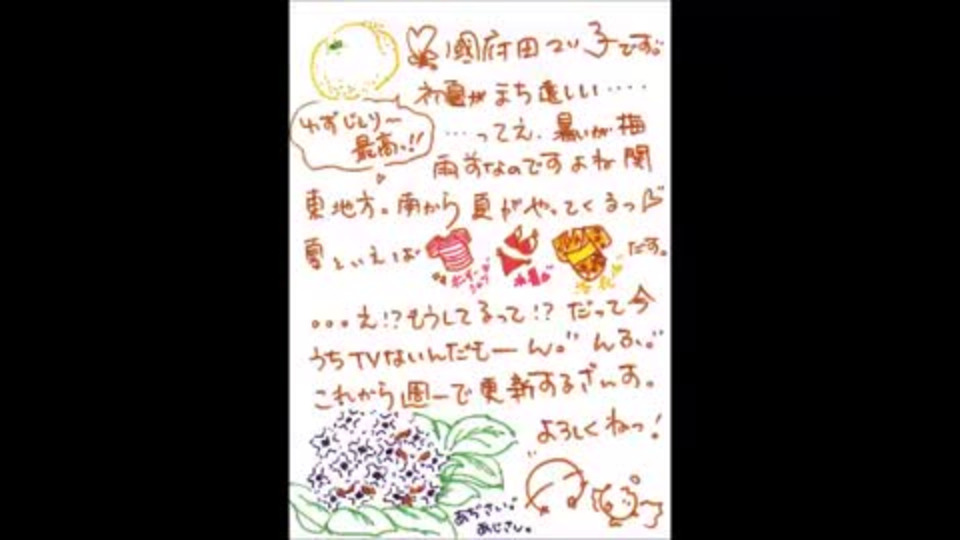 國府田マリ子です。
初夏がまち遠しい‥‥
わずじるり〜
最高っ!!
…ってえ、暑いが梅
雨前なのですよね関
東地方。南から夏がやってくるっ
夏といえば
水着
だす。
...え!?もうしてるって!?だって今
うちTVないんだもーん。んが。
これから週一で更新するざいす。
よろしくねっ!
あぢさい。
あじさい。